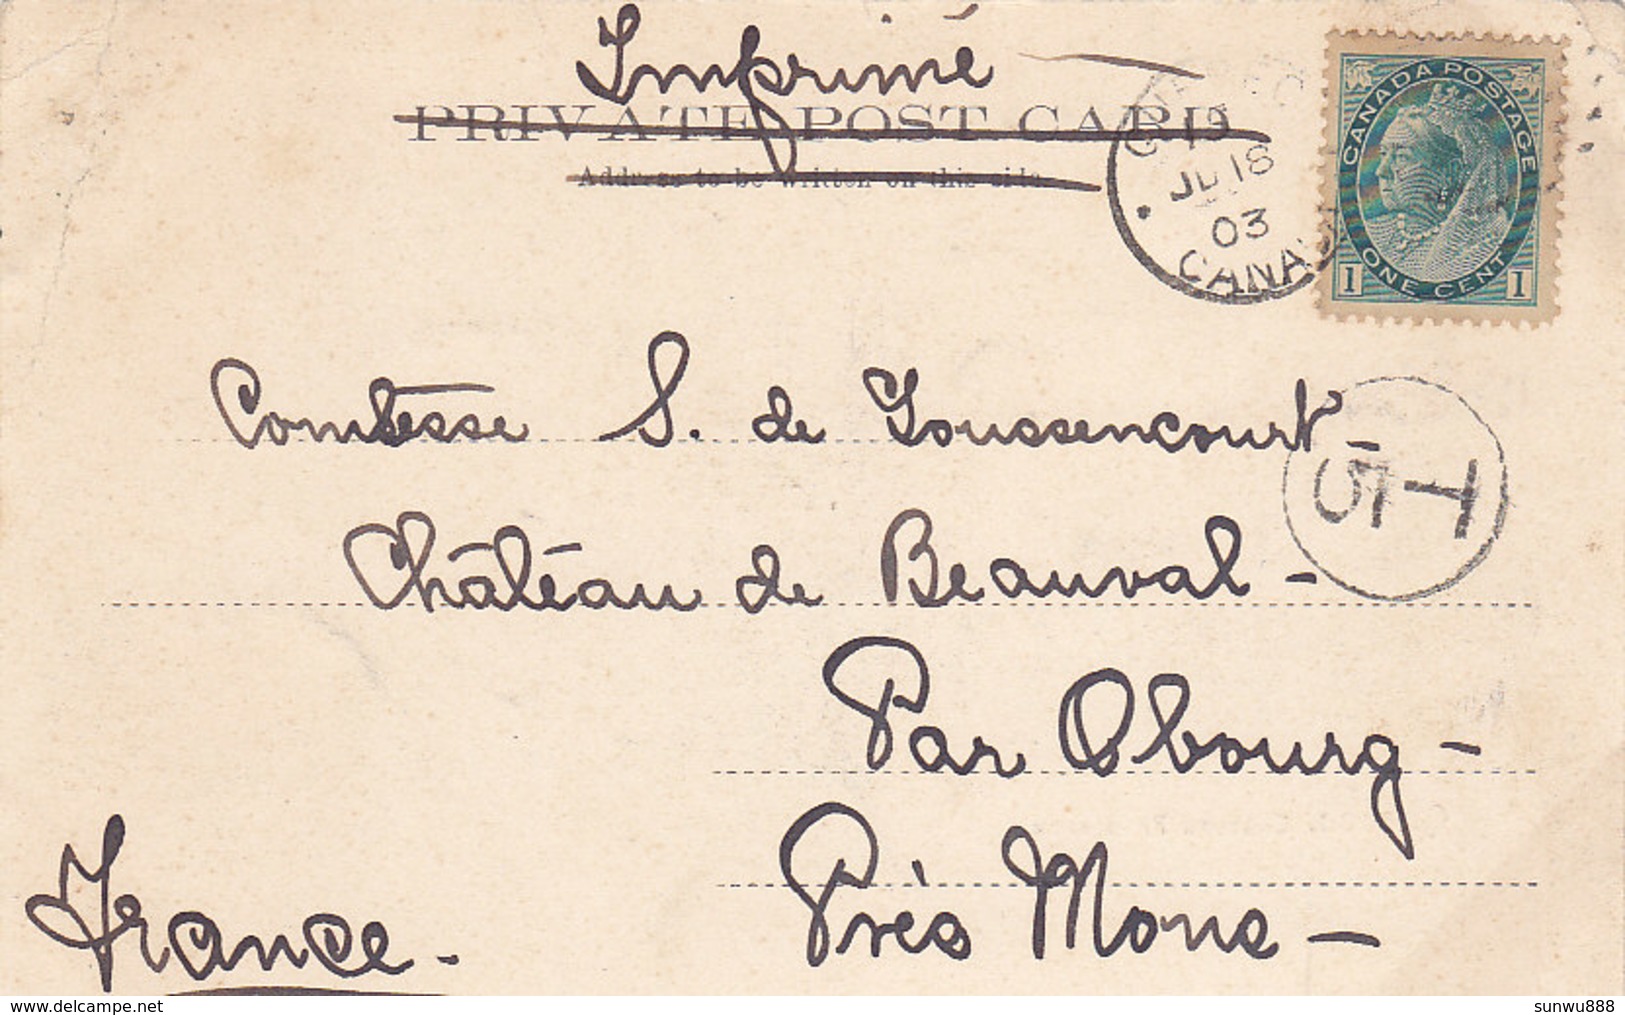 Imprimé
PRIVATE POST CARD
Address to be written on this side
JU 18
03
CANADA
CANADA POSTAGE
ONE CENT
1 1
Comtesse S. de Goussencourt -
T
5
Château de Beauval -
Par Obourg -
Près Mons -
France -
delcampe.net
sunwu888